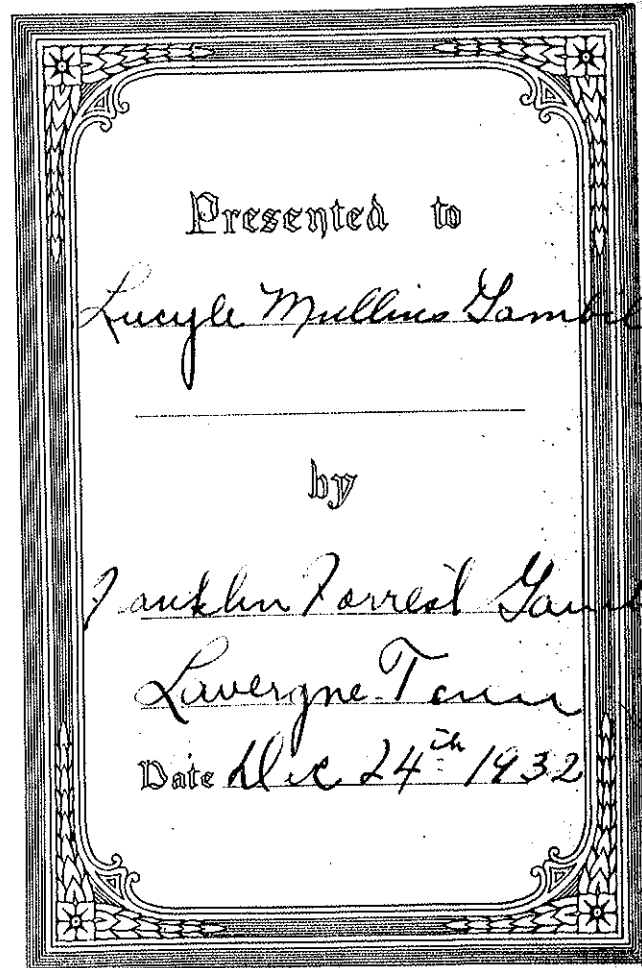 Presented to
Lucyle Mullins Gambil
by
Franklin Forrest Gam
Lavergne Tenn
Date Dec 24th 1932